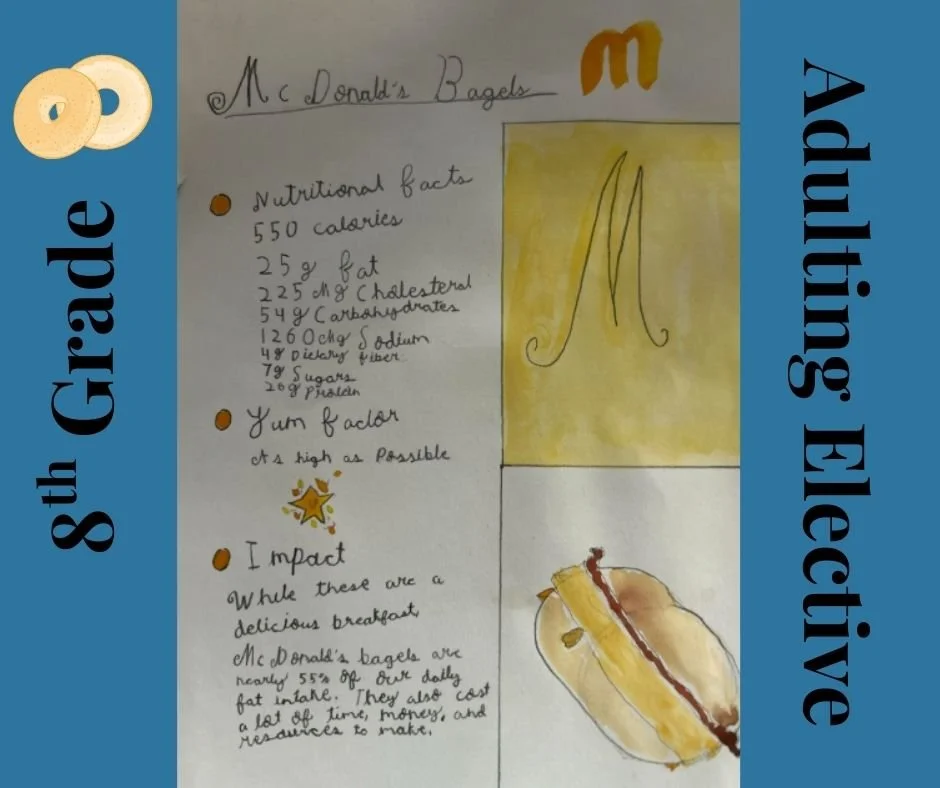 8th Grade
McDonald's Bagels
M
M
Nutritional facts
550 calories
25g fat
225 Mg Cholesterol
54g Carbohydrates
1260 Mg Sodium
4g Dietary fiber
7g Sugars
26g Protein
Yum factor
As high as Possible
Impact
While these are a
delicious breakfast,
McDonald's bagels are
nearly 55% of our daily
fat intake. They also cost
a lot of time, money, and
resources to make.
Adulting Elective